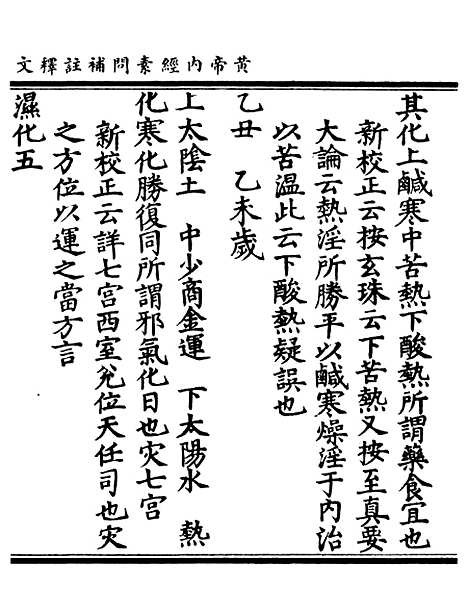 黄帝内經素問補註釋文
其化上鹹寒中苦熱下酸熱所謂藥食宜也
新校正云按玄珠云下苦熱又按至真要
大論云熱淫所勝平以鹹寒燥淫于内治
以苦温此云下酸熱疑誤也
乙丑　乙未歲
上太陰土　中少商金運　下太陽水　熱
化寒化勝復同所謂邪氣化日也灾七宫
新校正云詳七宫西室兊位天任司也灾
之方位以運之當方言
濕化五